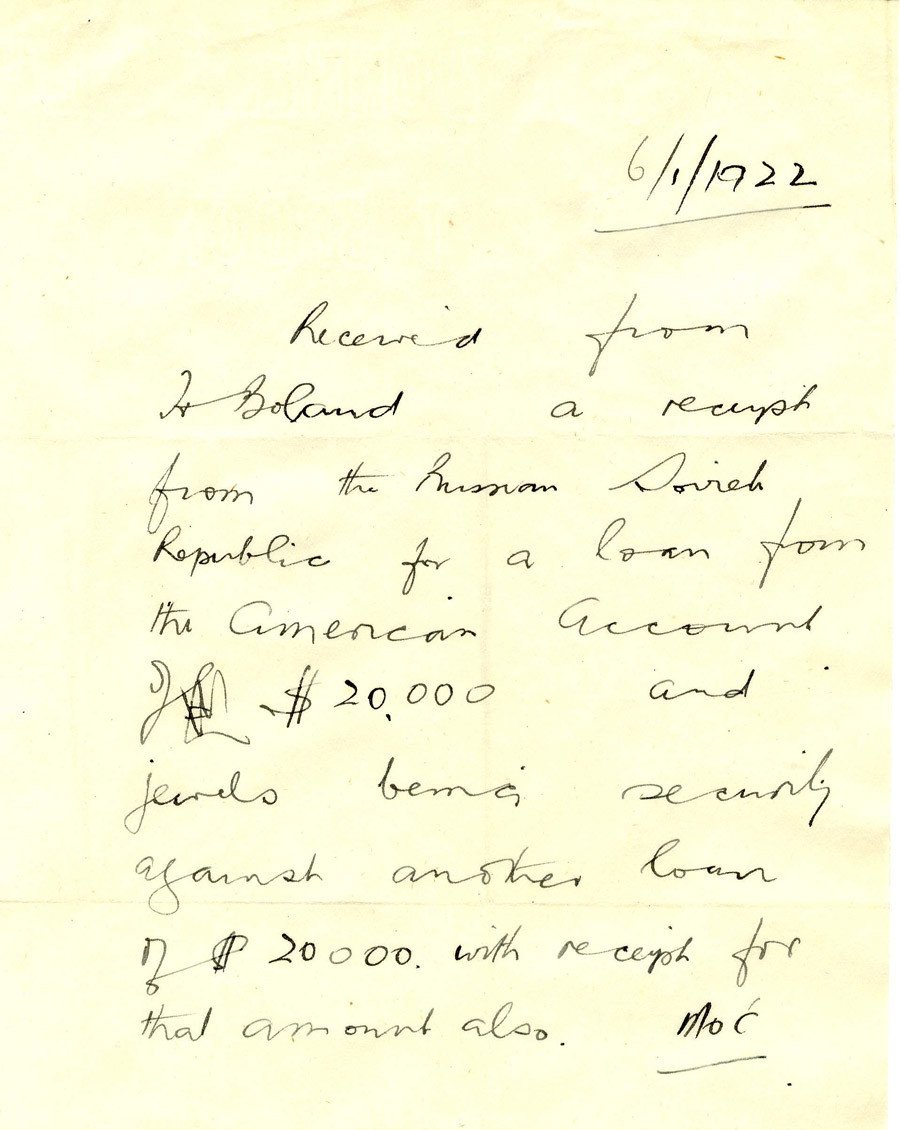 6/1/1922
Received from
H Boland a receipt
from the Russian Soviet
Republic for a loan from
the American Account
of $ 20,000 and
jewels being security
against another loan
of $ 20000. with receipt for
that amount also. MOC